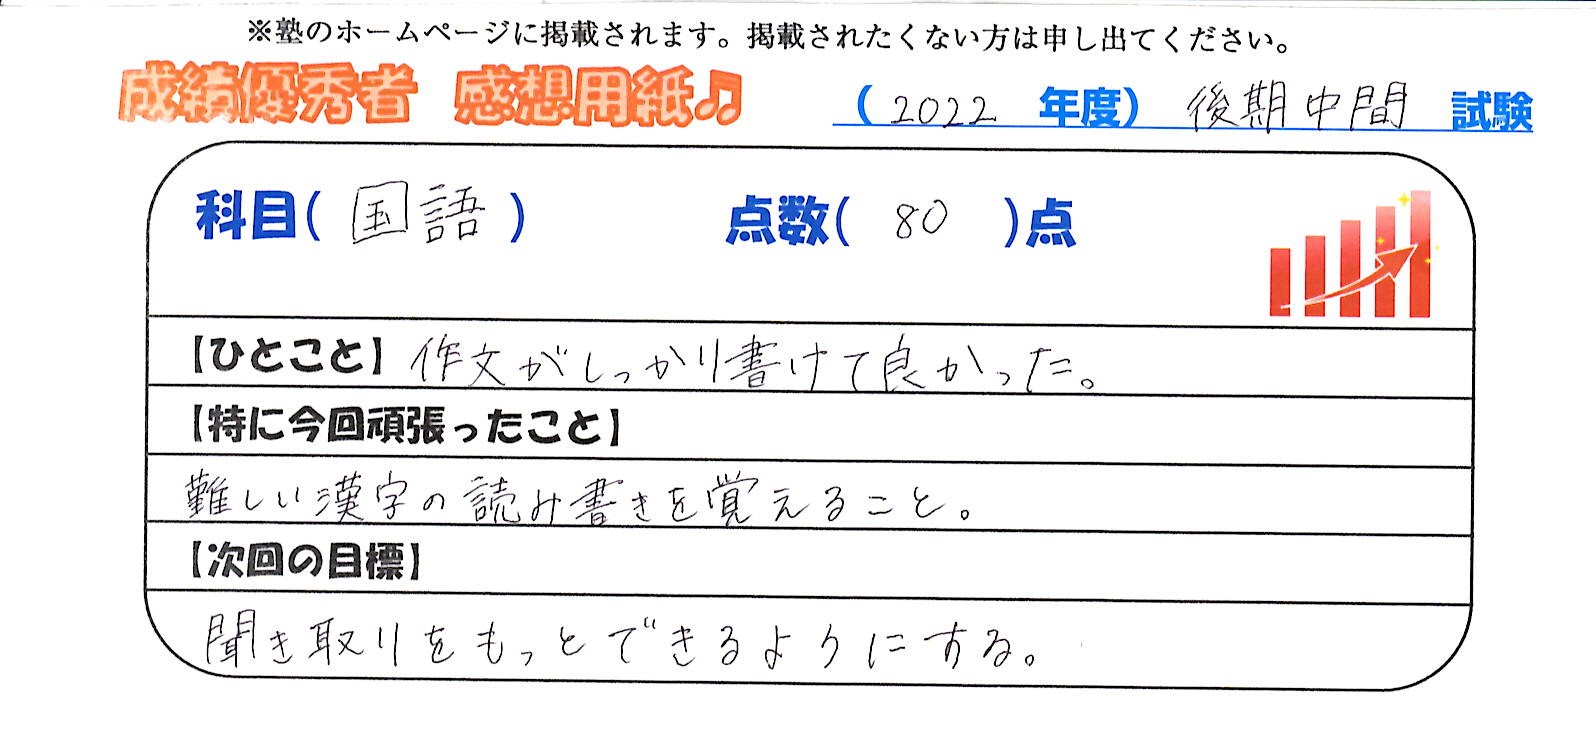 ※塾のホームページに掲載されます。掲載されたくない方は申し出てください。
成績優秀者 感想用紙♫ (2022 年度) 後期中間 試験
科目( 国語 ) 点数( 80 )点
【ひとこと】作文がしっかり書けて良かった。
【特に今回頑張ったこと】
難しい漢字の読み書きを覚えること。
【次回の目標】
聞き取りをもっとできるようにする。